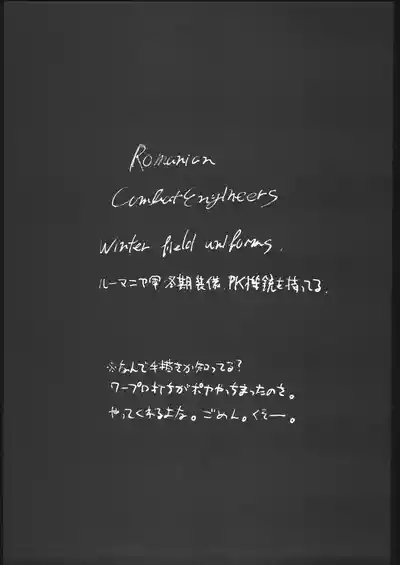 Romanian
Combat Engineers
Winter field uniforms.
ルーマニヤ軍冬期装備、PK機銃を持ってる。
※なんで手描きか知ってる?
ワープロ打ちがボヤやっちまったのさ。
やってくれるよな。ごめん。くそー。